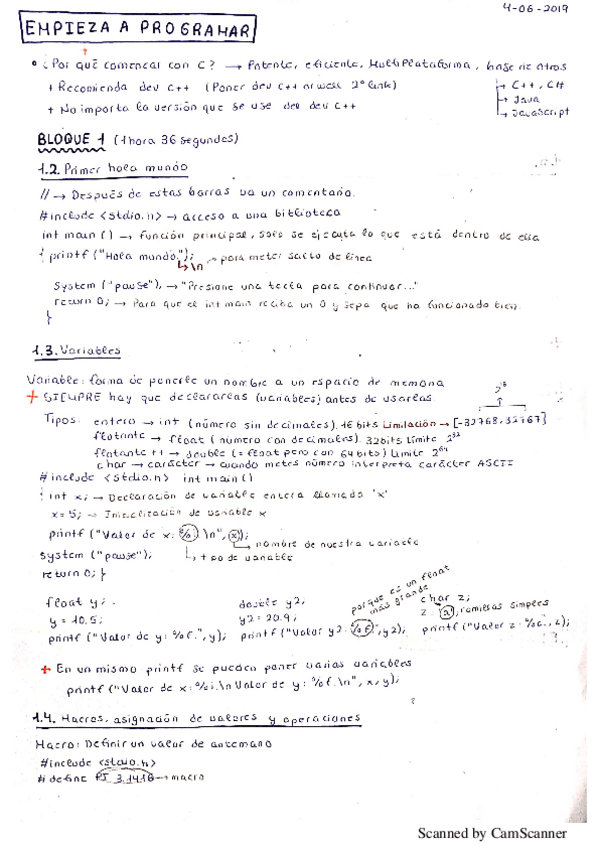 4-06-2019
EMPIEZA A PROGRAMAR
° ¿Por qué comenzar con C? → Potente, eficiente, Multiplataforma, base de otros
→ C++, C#
→ Java
→ JavaScript
+ Recomienda dev c++ (Poner dev c++ orwell 2º link)
+ No importa la versión que se use del dev c++
BLOQUE 1 (1 hora 36 segundos)
1.2. Primer hola mundo
// → Después de estas barras va un comentario.
#include <stdio.h> → acceso a una biblioteca
int main () → función principal, solo se ejecuta lo que está dentro de ella
{ printf ("Hola mundo.");
→ \n → para meter salto de línea
System ("pause"); → "Presione una tecla para continuar..."
return 0; → Para que el int main reciba un 0 y sepa que ha funcionado bien.
}
1.3. Variables
Variable: forma de ponerle un nombre a un espacio de memoria
+ SIEMPRE hay que declararlas (variables) antes de usarlas.
Tipos: entero → int (número sin decimales). 16 bits Limitación → [-32768, 32767]
flotante → float (número con decimales). 32bits Límite 2³²
flotante ++ → double (= float pero con 64 bits) Límite 2⁶⁴
char → carácter → cuando metes número interpreta carácter ASCII
#include <stdio.h> int main ()
{ int x; → Declaración de variable entera llamada 'x'
x = 5; → Inicialización de variable x
printf ("Valor de x: %i \n", x);
→ nombre de nuestra variable
System ("pause");
→ tipo de variable
return 0; }
porque es un float más grande
float y;
y = 10.5;
printf ("Valor de y: %f.", y);
double y2,
y2 = 20.9;
printf ("Valor y2: %f.", y2);
char z;
z = 'a'; comillas simples
printf ("Valor z: %c., z);
+ En un mismo printf se pueden poner varias variables
printf ("Valor de x: %i.\n Valor de y: %f.\n", x, y);
1.4. Macros, asignación de valores y operaciones
Macro: Definir un valor de antemano
#include <stdio.h>
#define PI 3.1416 → macro
Scanned by CamScanner